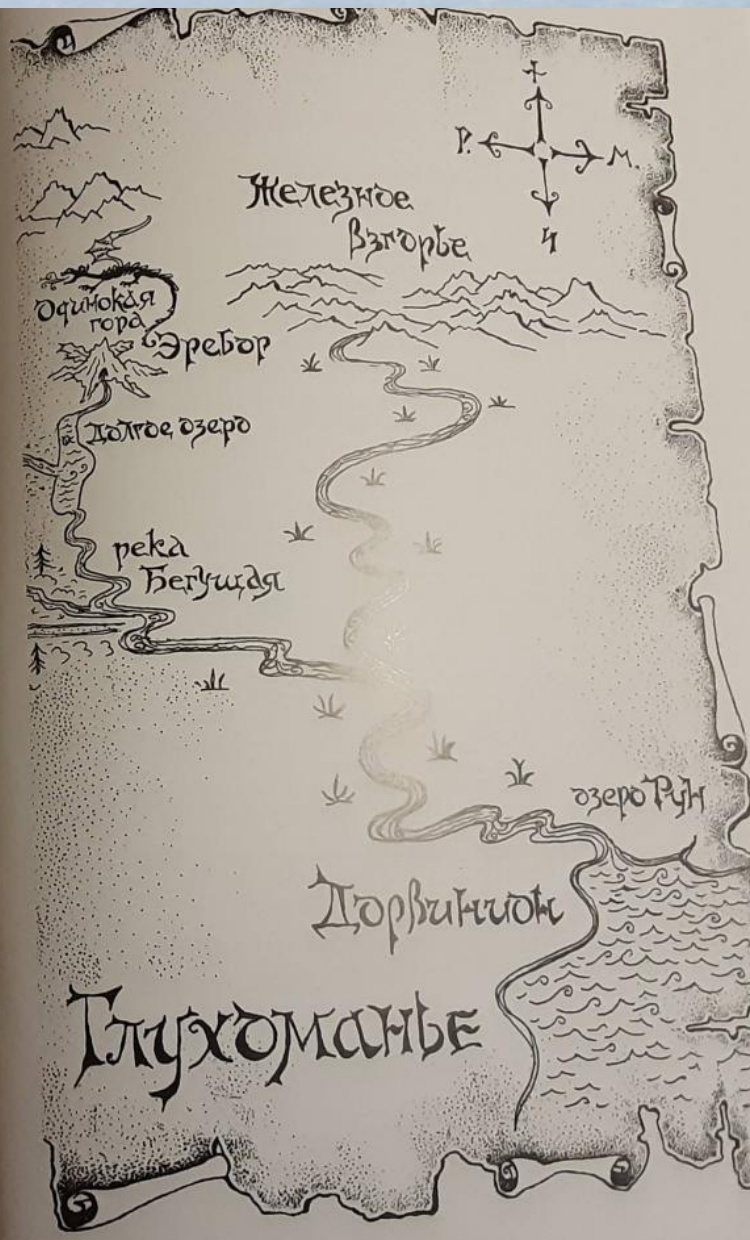 Р. М.
Ч
Железное
Взгорье
Одинокая
гора
Эребор
Долгое озеро
река
Бегущая
озеро Рун
Дорвинион
Глухоманье